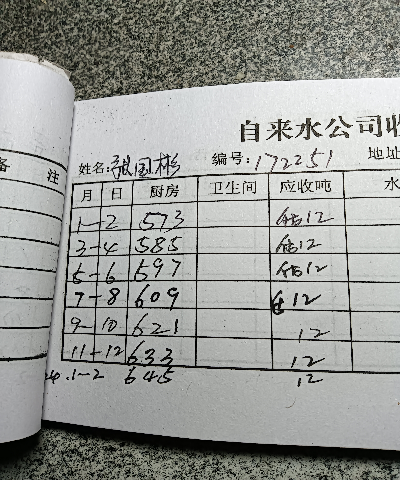 自来水公司收
姓名:张国彬 编号:172251 地址
备 注
月 日 厨房 卫生间 应收吨 水
1-2 573 估12
3-4 585 估12
5-6 597 估12
7-8 609 估12
9-10 621 12
11-12 633 12
.1-2 645 12